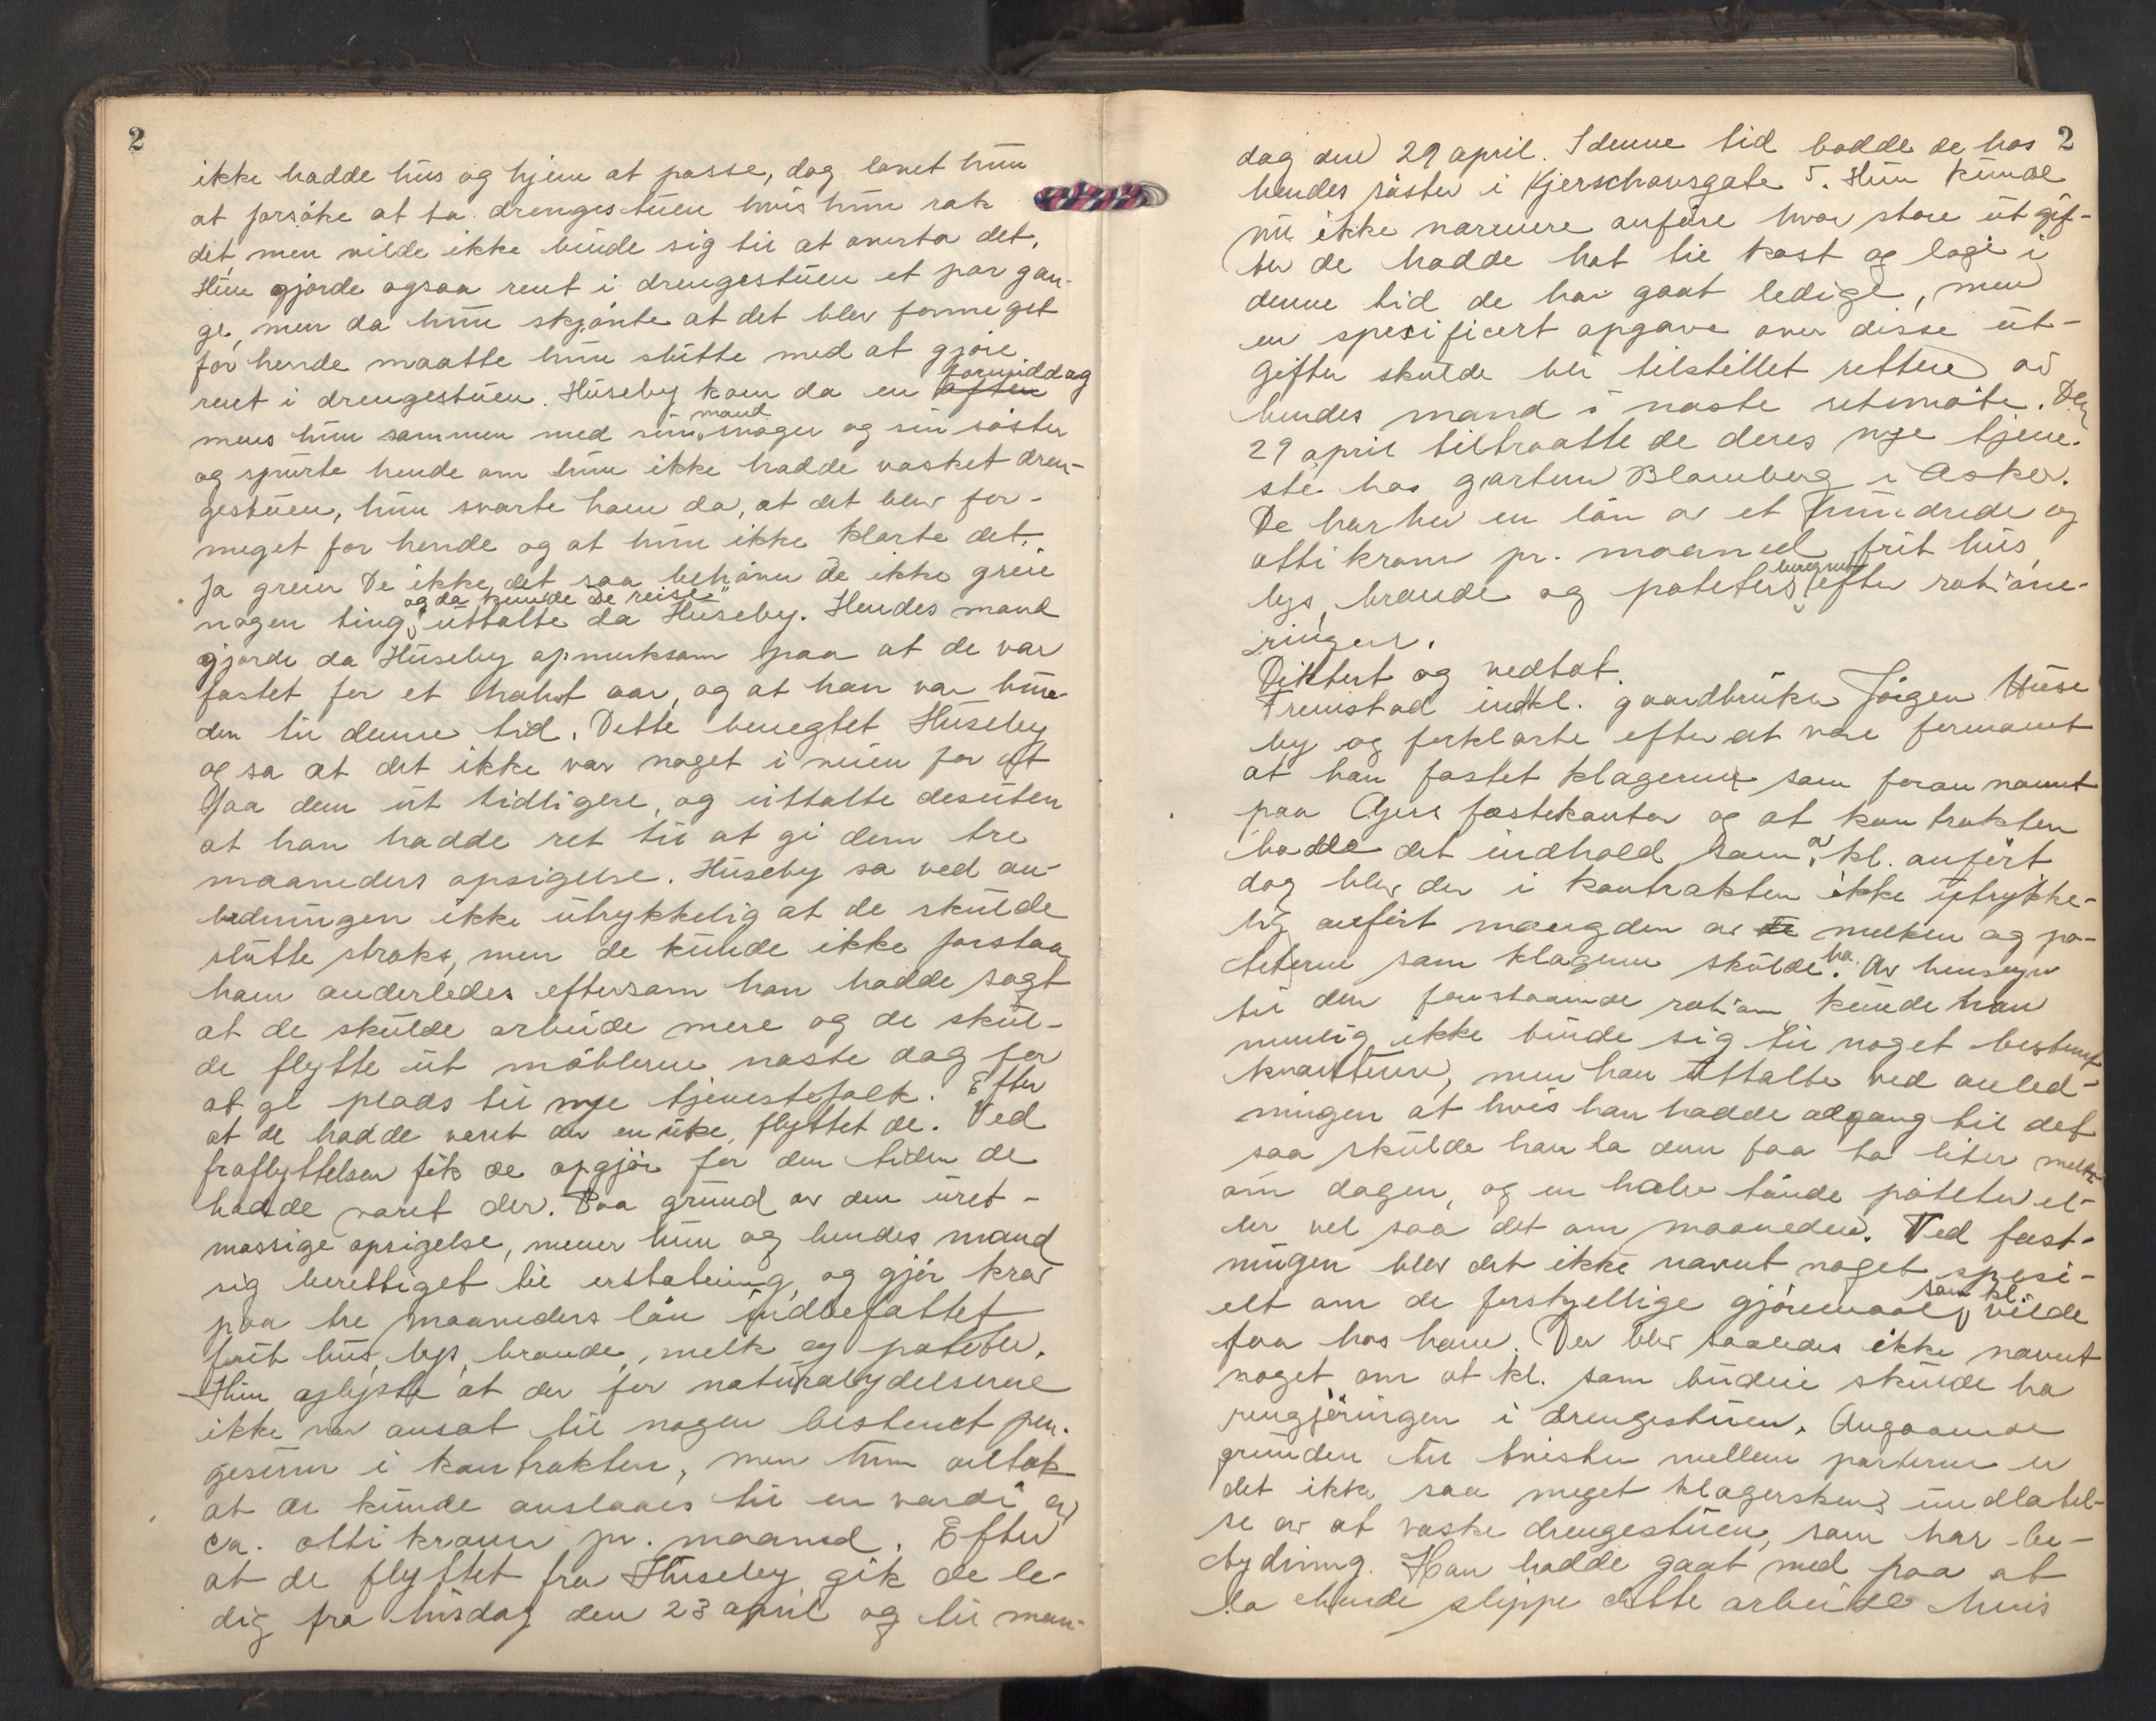 2
ikke hadde hus og hjem at passe, dog lovet hun
at forsøke at ta drengestuen hvis hun rak
det, men vilde ikke binde sig til at overta det.
Hun gjorde ogsaa rent i drengestuen et par gan-
ge, men da hun skjønte at det blev formeget
for hende maatte hun slutte med at gjøre
rent i drengestuen. Huseby kom da en aften formiddag
mens hun sammen med sin mand, svoger og sin søster
og spurte hende om hun ikke hadde vasket dren-
gestuen, hun svarte ham da, at det blev for-
meget for hende og at hun ikke klarte det.
"Ja greier De ikke det saa behøver De ikke greie
nogen ting, og da kunde De reise" uttalte da Huseby. Hendes mand
gjorde da Huseby opmerksom paa at de var
fæstet for et halvt aar, og at han var bun-
den til denne tid. Dette benegtet Huseby
og sa at det ikke var noget i veien for at
faa dem ut tidligere, og uttalte desuten
at han hadde ret til at gi dem tre
maaneders opsigelse. Huseby sa ved an-
ledningen ikke utrykkelig at de skulde
slutte straks, men de kunde ikke forstaa
ham anderledes eftersom han hadde sagt
at de skulde arbeide mere og de skul-
de flytte ut møblerne næste dag for
at gi plads til nye tjenestefolk. Efter
at de hadde været der en uke, flyttet de. Ved
fraflyttelsen fik de opgjør for den tiden de
hadde været der. Paa grund av den uret-
mæssige opsigelse, mener hun og hendes mand
sig berettiget til erstatning, og gjør krav
paa tre maaneders løn indbefattet
frit hus, lys, brænde, melk og poteter.
Hun oplyste at der for naturalydelserne
ikke var ansat til nogen bestemt pen-
gesum i kontrakten, men hun antok
at de kunde anslaaes til en værdi av
ca. otti kroner pr. maaned. Efter
at de flyttet fra Huseby gik de le-
dig fra tirsdag den 23 april og til man-
2
dag den 29 april. I denne tid bodde de hos
hendes søster i Kjerschowsgate 5. Hun kunde
nu ikke nærmere anføre hvor store utgif-
ter de hadde hat til kost og logi i
denne tid de har gaat ledige, men
en spesificert opgave over disse ut-
gifter skulde bli tilstillet retten av
hendes mand i næste retsmøte. Den
29 april tiltraatte de deres nye tjene-
ste hos gartner Blomberg i Asker.
De har her en løn av et hundrede og
otti kroner pr. maaned, frit hus,
lys, brænde og poteter beregnet efter rasjone-
ringen.
Diktert og vedtat.
Fremstod indkl. gaardbruker Jørgen Huse
by og forklarte efter at være formanet
at han fæstet klagerne som foran nævnt
paa Akers fæstekontor og at kontrakten
hadde det indhold som av kl. anført
dog blev der i kontrakten ikke uttrykke-
lig anført mængden av de melken og po-
teterne som klagerne skulde ha. Av hensyn
til den forestaaende ration kunde han
nemlig ikke binde sig til noget bestemt
kvantum, men han uttalte ved anled-
ningen at hvis han hadde adgang til det
saa skulde han la dem faa to liter melk
om dagen, og en halv tønde poteter el-
ler vel saa det om maaneden. Ved fæst-
ningen blev det ikke nævnt noget spesi-
elt om de forskjellige gjøremaal, som kl. vilde
faa hos ham. Der blev saaledes ikke nævnt
noget om at kl. som budeie skulde ha
rengjøringen i drengestuen. Angaaende
grunden til tvisten mellem parterne er
det ikke saa meget klagerskens undlatel-
se av at vaske drengestuen, som har be-
tydning. Han hadde gaat med paa at
la hende slippe dette arbeide hvis